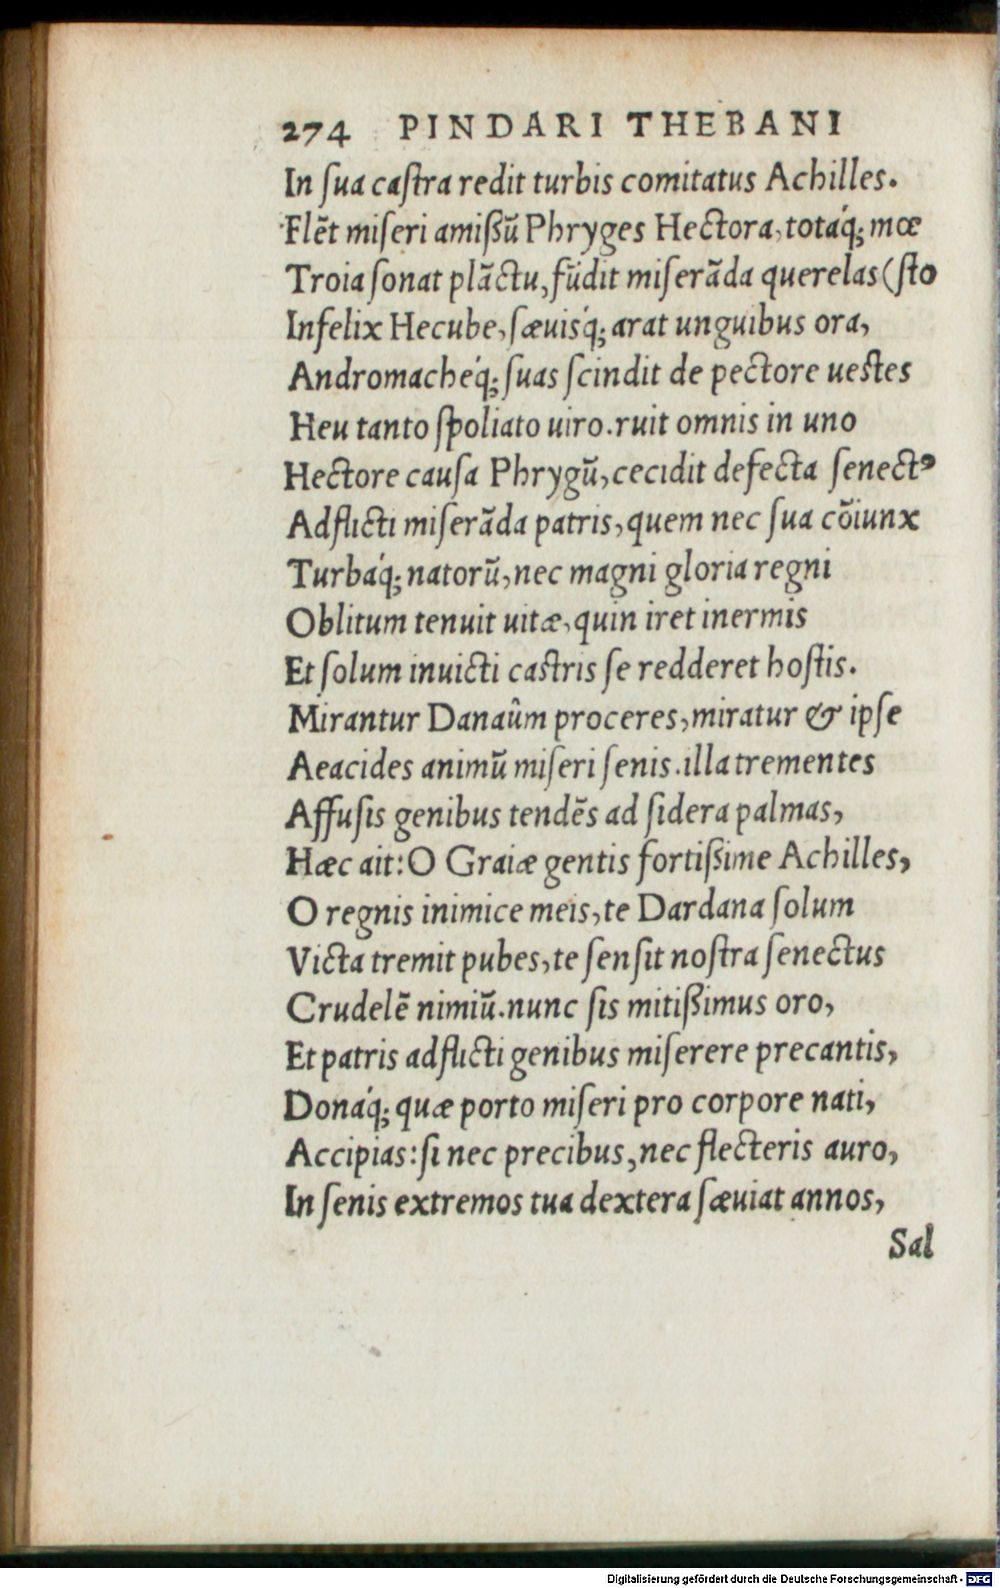 274 PINDARI THEBANI
In ſua caſtra redit turbis comitatus Achilles.
Flēt miſeri amißū Phryges Hectora, totáq; mœ
Troia ſonat plāctu, fūdit miſerāda querelas (ſto
Infelix Hecube, ſæuisq́; arat unguibus ora,
Andromacheq́; ſuas ſcindit de pectore ueſtes
Heu tanto ſpoliato uiro. ruit omnis in uno
Hectore cauſa Phrygū, cecidit defecta ſenectꝰ
Adflicti miſerāda patris, quem nec ſua cōiunx
Turbáq; natorū, nec magni gloria regni
Oblitum tenuit uitæ, quin iret inermis
Et ſolum inuicti caſtris ſe redderet hoſtis.
Mirantur Danaûm proceres, miratur & ipſe
Aeacides animū miſeri ſenis. illa trementes
Affuſis genibus tendēs ad ſidera palmas,
Hæc ait: O Graiæ gentis fortißime Achilles,
O regnis inimice meis, te Dardana ſolum
Victa tremit pubes, te ſenſit noſtra ſenectus
Crudelē nimiū. nunc ſis mitißimus oro,
Et patris adflicti genibus miſerere precantis,
Donáq; quæ porto miſeri pro corpore nati,
Accipias: ſi nec precibus, nec flecteris auro,
In ſenis extremos tua dextera ſæuiat annos,
Sal
Digitalisierung gefördert durch die Deutsche Forschungsgemeinschaft - DFG